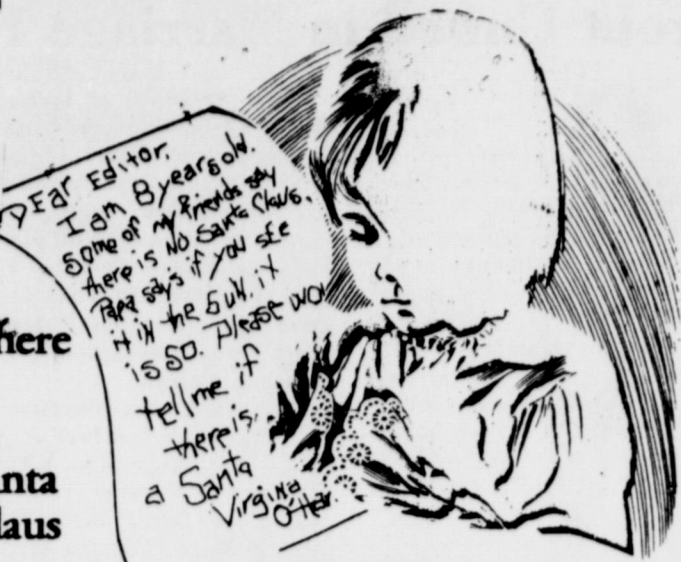 DEar Editor,
I am 8 years old.
some of my friends say
there is NO Santa Claus.
Papa says if you see
it in the Sun. it
is so. Please
tell me if
there is
a Santa
Virginia
O'Han
here
nta
laus